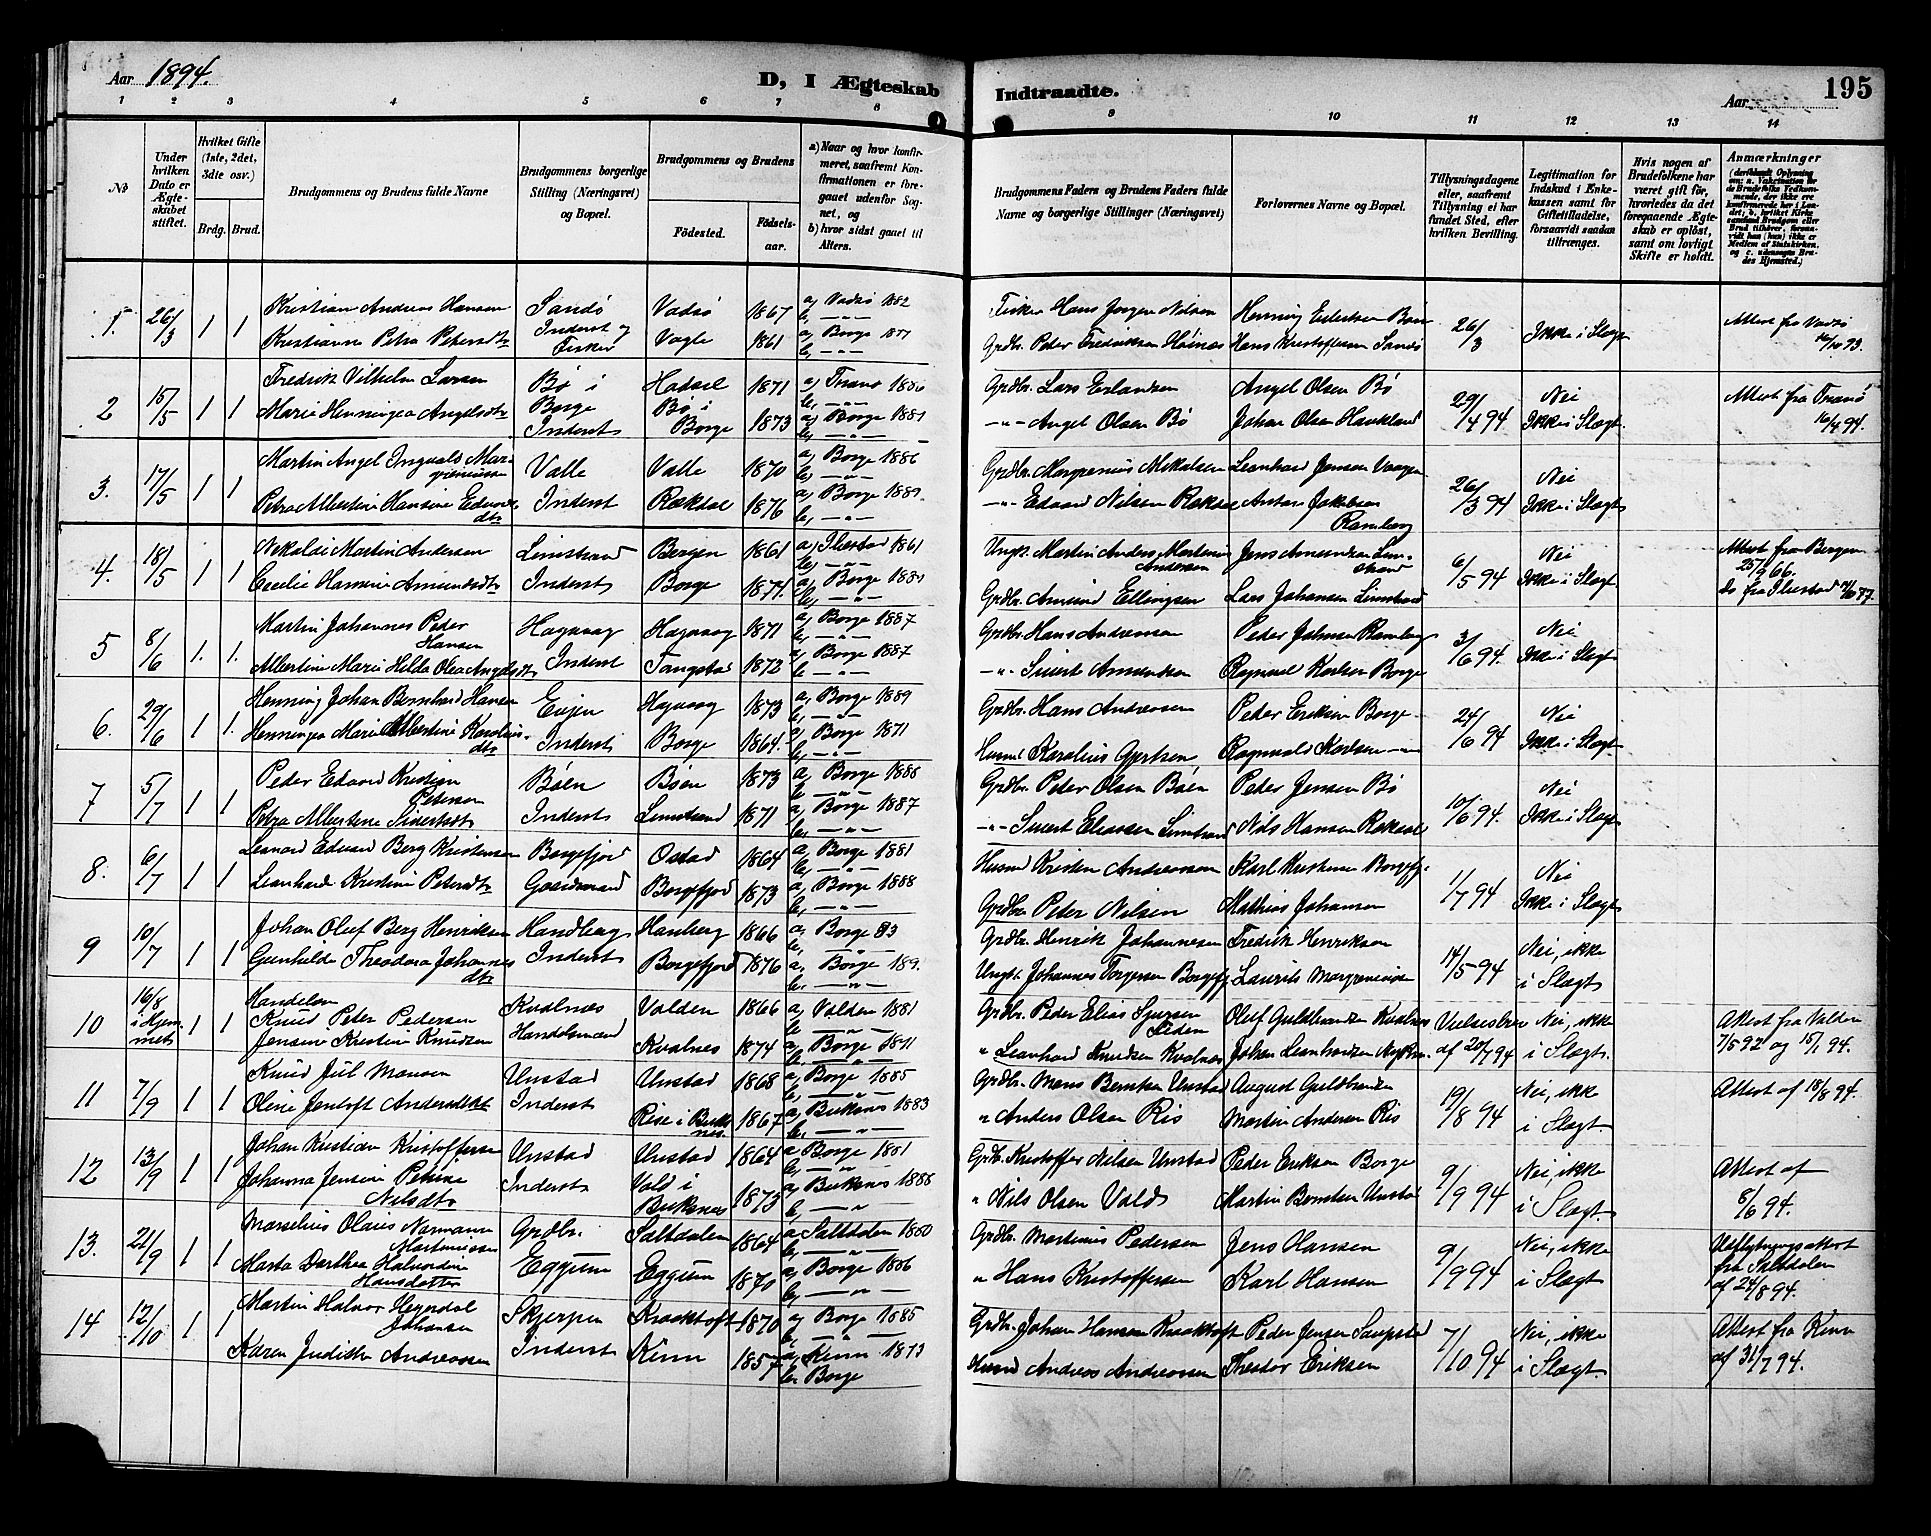 Aar 1894.
D, I Ægteskab
Indtraadte.
Aar
195
1 2 3 4 5 6 7 8 9 10 11 12 13 14
№
Under hvilken Dato er Ægteskabet stiftet.
Hvilket Gifte (1ste, 2det, 3die osv.)
Brdg. Brud.
Brudgommens og Brudens fulde Navne
Brudgommens borgerlige Stilling (Næringsvei) og Bopæl.
Brudgommens og Brudens
Födested.
Födselsaar.
a) Naar og hvor konfirmeret, saafremt Konfirmationen er foregaaet udenfor Sognet, og
b) hvor sidst gaaet til Alters.
Brudgommens Faders og Brudens Faders fulde Navne og borgerlige Stillinger (Næringsvei)
Forlovernes Navne og Bopæl.
Tillysningsdagene eller, saafremt Tillysning ei har fundet Sted, efter hvilken Bevilling.
Legitimation for Indskud i Ænkekassen samt for Giftetilladelse, forsaavidt saadan tiltrænges.
Hvis nogen af Brudefolkene har været gift för, hvorledes da det foregaaende Ægteskab er oplöst, samt om lovligt Skifte er holdt.
Anmærkninger
1. 26/3 1 1 Kristian Andreas Hansen Sandö Vadsö 1867 a, Vadsö 1882 Fisker Hans Jorgen Nilsen Henning Edertsen Böen 26/3 Ikke i Slægt Attest fra Vadsö
Kristianne Petra Petersdtr Inderst og Fisker Vagle 1861 a, Borge 1877 Grdbr. Peter Fredriksen Höinæs Hans Kristoffersen Sandö
2 15/5 1 1 Fredrik Vilhelm Larsen Bö i Borge Hadsel 1871 a, Tranö 1886 Grdbr. Lars Erlandsen Angel Olsen Bö 29/4 94 Nei Attest fra Tranö
Marie Henningea Angelsdtr Inderst Bö i Borge 1873 a, Borge 1889 -"- Angel Olsen Bö Johan Olsen Haukland Ikke i Slægt. 16/4 94.
3. 17/5 1 1 Martin Angel Ingvals Margrenius Valle Valle 1870 a, Borge 1886 Grdbr. Margrenius Mikalsen Leonhard Jensen Vaagen 26/3 94 Nei
Petra Albertine Hansine Edvardsdtr Inderst Rækdal 1876 a, Borge 1889. -"- Edvard Nilsen Anton Jakobsen Ramberg Ikke i Slægt
4. 18/5 1 1 Nikolai Martin Andersen Limstrand Bergen 1861 a, Ibestad 1861 Ungk. Martin Anders Martinus Andersen Jens Amundsen Limstrand 6/5 94 Nei Attest fra Bergen 25/9 66.
Cecilie Hansine Amundsdtr Inderst Borge 1874. a, Borge 1889 Grdbr. Amund Ellingsen Lars Johansen Limstrand Ikke i Slægt Do fra Ibestad
5 8/6 1. 1. Martin Johannes Peder Hansen Hagavaag Hagavaag 1871 a, Borge 1887 Grdbr. Hans Andreassen Peder Johnsen Ramberg 3/6 94. Nei
Albertine Marie Helda Olea Angelsdtr Inderst Tangstad 1872 a, Borge 1887 -"- Sivert Amundsen Ragnvald Karlsen Borge Ikke i Slægt
6. 29/6 1 1. Henning Johan Bernhard Hansen Evjen Hagavaag 1873 a, Borge 1889 Grdbr. Hans Andreasen Peder Eriksen Borge 24/6 94 Nei
Henningea Marie Albertine Karoliusdtr Inderst Borge 1864. a, Borge 1871 Husmd Karolius Gjertsen Ragnvald Karlsen -"- Ikke i Slægt
7 5/7 1 1 Peder Edvard Kristian Petersen Böen Böen 1873 a, Borge 1888 Grdbr. Peter Olsen Böen Peder Jensen Bö 10/6 94. Nei
Petra Albertine Sivertsdtr Inderst Limstrand 1871 a, Borge 1887 -"- Sivert Eliassen Limstrand Nils Hansen Ikke i Slægt
8. 6/7 1 1 Leonard Edvard Berg Kristensen Borgefjord Ostad 1864 a, Borge 1881 Husmd Kristen Andreassen Karl Kristensen Borgefj. 1/7 94 Nei
Leanhard Kristine Petersdtr Gaardmand Borgefjord 1873 a, Borge 1888 Grdbr Peter Nilsen Mathias Johansen Ikke i Slægt.
9 10/7 1 1 Johan Oluf Berg Henriksen Handberg Hanberg 1866 a, Borge 83 Grdbr. Henrik Johannesen Fredrik Henriksen 14/5-94 Nei, ikke
Gunhilde Theodora Johannesdtr Inderst Borgefjord 1876 a, Borge 189. Ungk. Johannes Torgersen Borgefj. Laurits Margreniusen i Slægt
10 16/8 i Hjemmet 1 1 Handelsm Knud Peter Pedersen Kvalnæs Valden 1866 a, Valden 1881 Grdbr. Peder Elias Olaf Guldbrandsen Kvalnes Vielsesbrev Nei, ikke Attest fra Valden
Jensine Kristine Knudsen Handelsmand Kvalnes 1874 a, Borge 1891 " Leanhard Knudsen Kvalnæs Johan Leanhardsen af 20/7 94 i Slægt. 7/5 92 og 15/1 94.
11 7/9 1 1 Knud Jul Monsen Unstad Unstad 1868 a, Borge 1885 Grdbr. Mons Berntsen Unstad August Guldbrandsen 19/8 94 Nei, ikke Attest af 18/8 94.
Oline Jentoft Andersdatr Inderst Rise i Buksnes. 1867 a, Buksnes 1883 " Anders Olsen Ris Martin Andersen Ris i Slægt.
12 13/9 1 1 Johan Kristian Kristoffersen Unstad Unstad 1864 a Borge 1881 Grdb. Kristoffer Nilsen Unstad Peder Eriksen Borge 9/9 94 Nei, ikke Attest af
Johanna Jensine Petrine Nilsdtr Inderst Vold i Buksnes 1873 a, Buksnes 1888 " Nils Olsen Vold Martin Berntsen Unstad i Slægt. 8/6 94.
13. 21/9 1 1 Marselius Olaus Normann Martinussen Grdbr. Saltdalen 1864 a Saltdalen 1880 Grdbr. Martinus Pedersen Jens Hansen 9/9 94 Nei, ikke Udflytningsattest
Marta Dorthea Halvordine Hansdatter Eggum Eggum 1870 a, Borge 1886 " Hans Kristoffersen Karl Hansen i Slægt fra Saltdalen af 24/8 94.
14 12/10 1 1 Martin Halvor Heyerdal Johansen Skjerpen Kraaktoft 1870 a, Borge 1885 Grdbr. Johan Hansen Kraaktoft Peder Jensen Saupstad 7/10 94 Nei, ikke Attest fra Kinn
Karen Judith Andreassen Inderst Kinn 1857 a, Kinn 1873 b. Borge Husmd Andreas Andreassen Thestor Eriksen i Slægt. af 31/7 94.